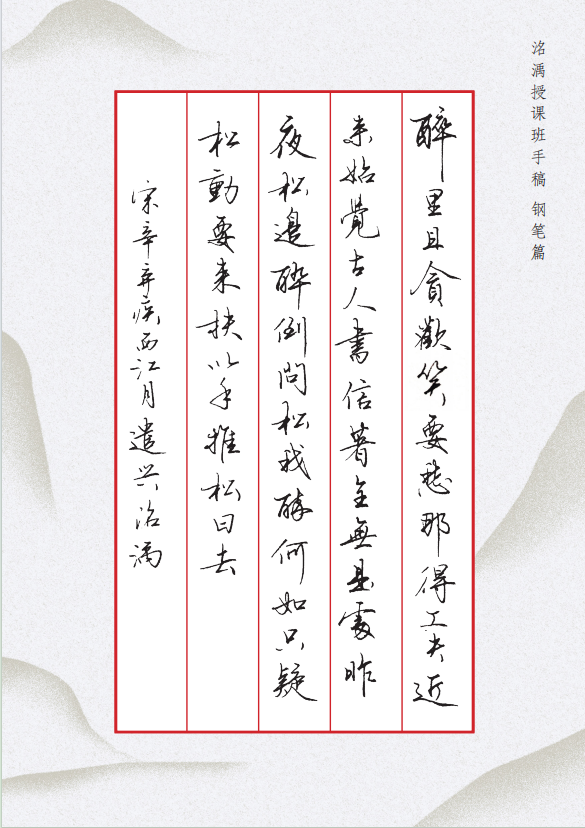 洺濊授课班手稿 钢笔篇
醉里且貪歡笑要愁那得工夫近
来始覺古人書信著全無是處昨
夜松邊醉倒問松我醉何如只疑
松動要来扶以手推松曰去
宋辛弃疾西江月遣兴洺濊